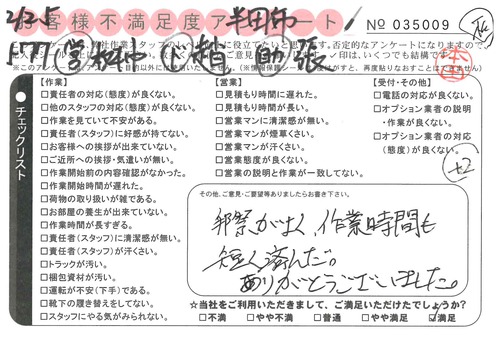 お客様不満足度アンケート!
半田市
No 035009
チェックリスト
【作業】
□責任者の対応(態度)が良くない。
□他のスタッフの対応(態度)が良くない。
□作業を見ていて不安がある。
□責任者(スタッフ)に好感が持てない。
□お客様への挨拶が出来ていない。
□ご近所への挨拶・気遣いが無い。
□作業開始前の内容確認がなかった。
□作業開始時間が遅れた。
□荷物の取り扱いが雑である。
□お部屋の養生が出来ていない。
□作業時間が長すぎる。
□責任者(スタッフ)に清潔感が無い。
□責任者(スタッフ)が汗くさい。
□トラックが汚い。
□梱包資材が汚い。
□運転が不安(下手)である。
□靴下の履き替えをしてない。
□スタッフにやる気がみられない。
【営業】
□見積もり時間に遅れた。
□見積もり時間が長い。
□営業マンに清潔感が無い。
□営業マンが煙草くさい。
□営業マンが汗くさい。
□営業態度が良くない。
□営業の説明と作業が一致してない。
【受付・その他】
□電話の対応が良くない。
□オプション業者の説明
・作業が良くない。
□オプション業者の対応
(態度)が良くない。
その他、ご意見・ご要望等ありましたらお書き下さい。
作業時間も
短く済んだ。
ありがとうございました。
☆当社をご利用いただきまして、ご満足いただけたでしょうか?
□不満 □やや不満 □普通 □やや満足 ☑満足